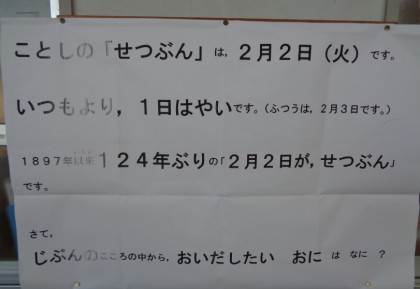 ことしの「せつぶん」は，２月２日（火）です。
いつもより，１日はやいです。（ふつうは，２月３日です。）
１８９７年以来１２４年ぶりの「２月２日が，せつぶん」
です。
さて，
じぶんのこころの中から，おいだしたい　おに　は　なに　？